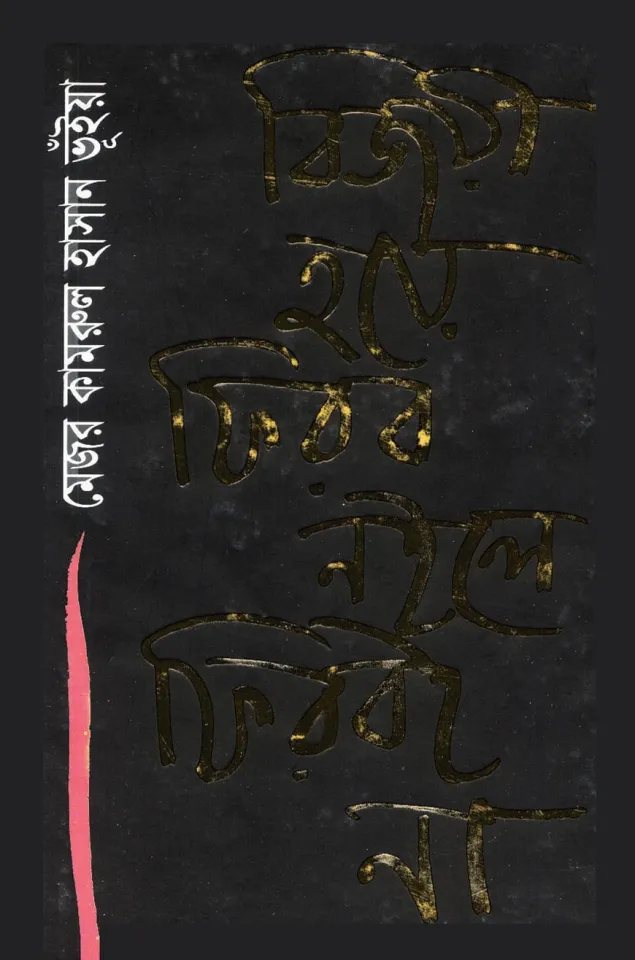 বিজয়ী
হয়ে
ফিরব
নইলে
ফিরবই
না
মেজর কামরুল হাসান ভূঁইয়া